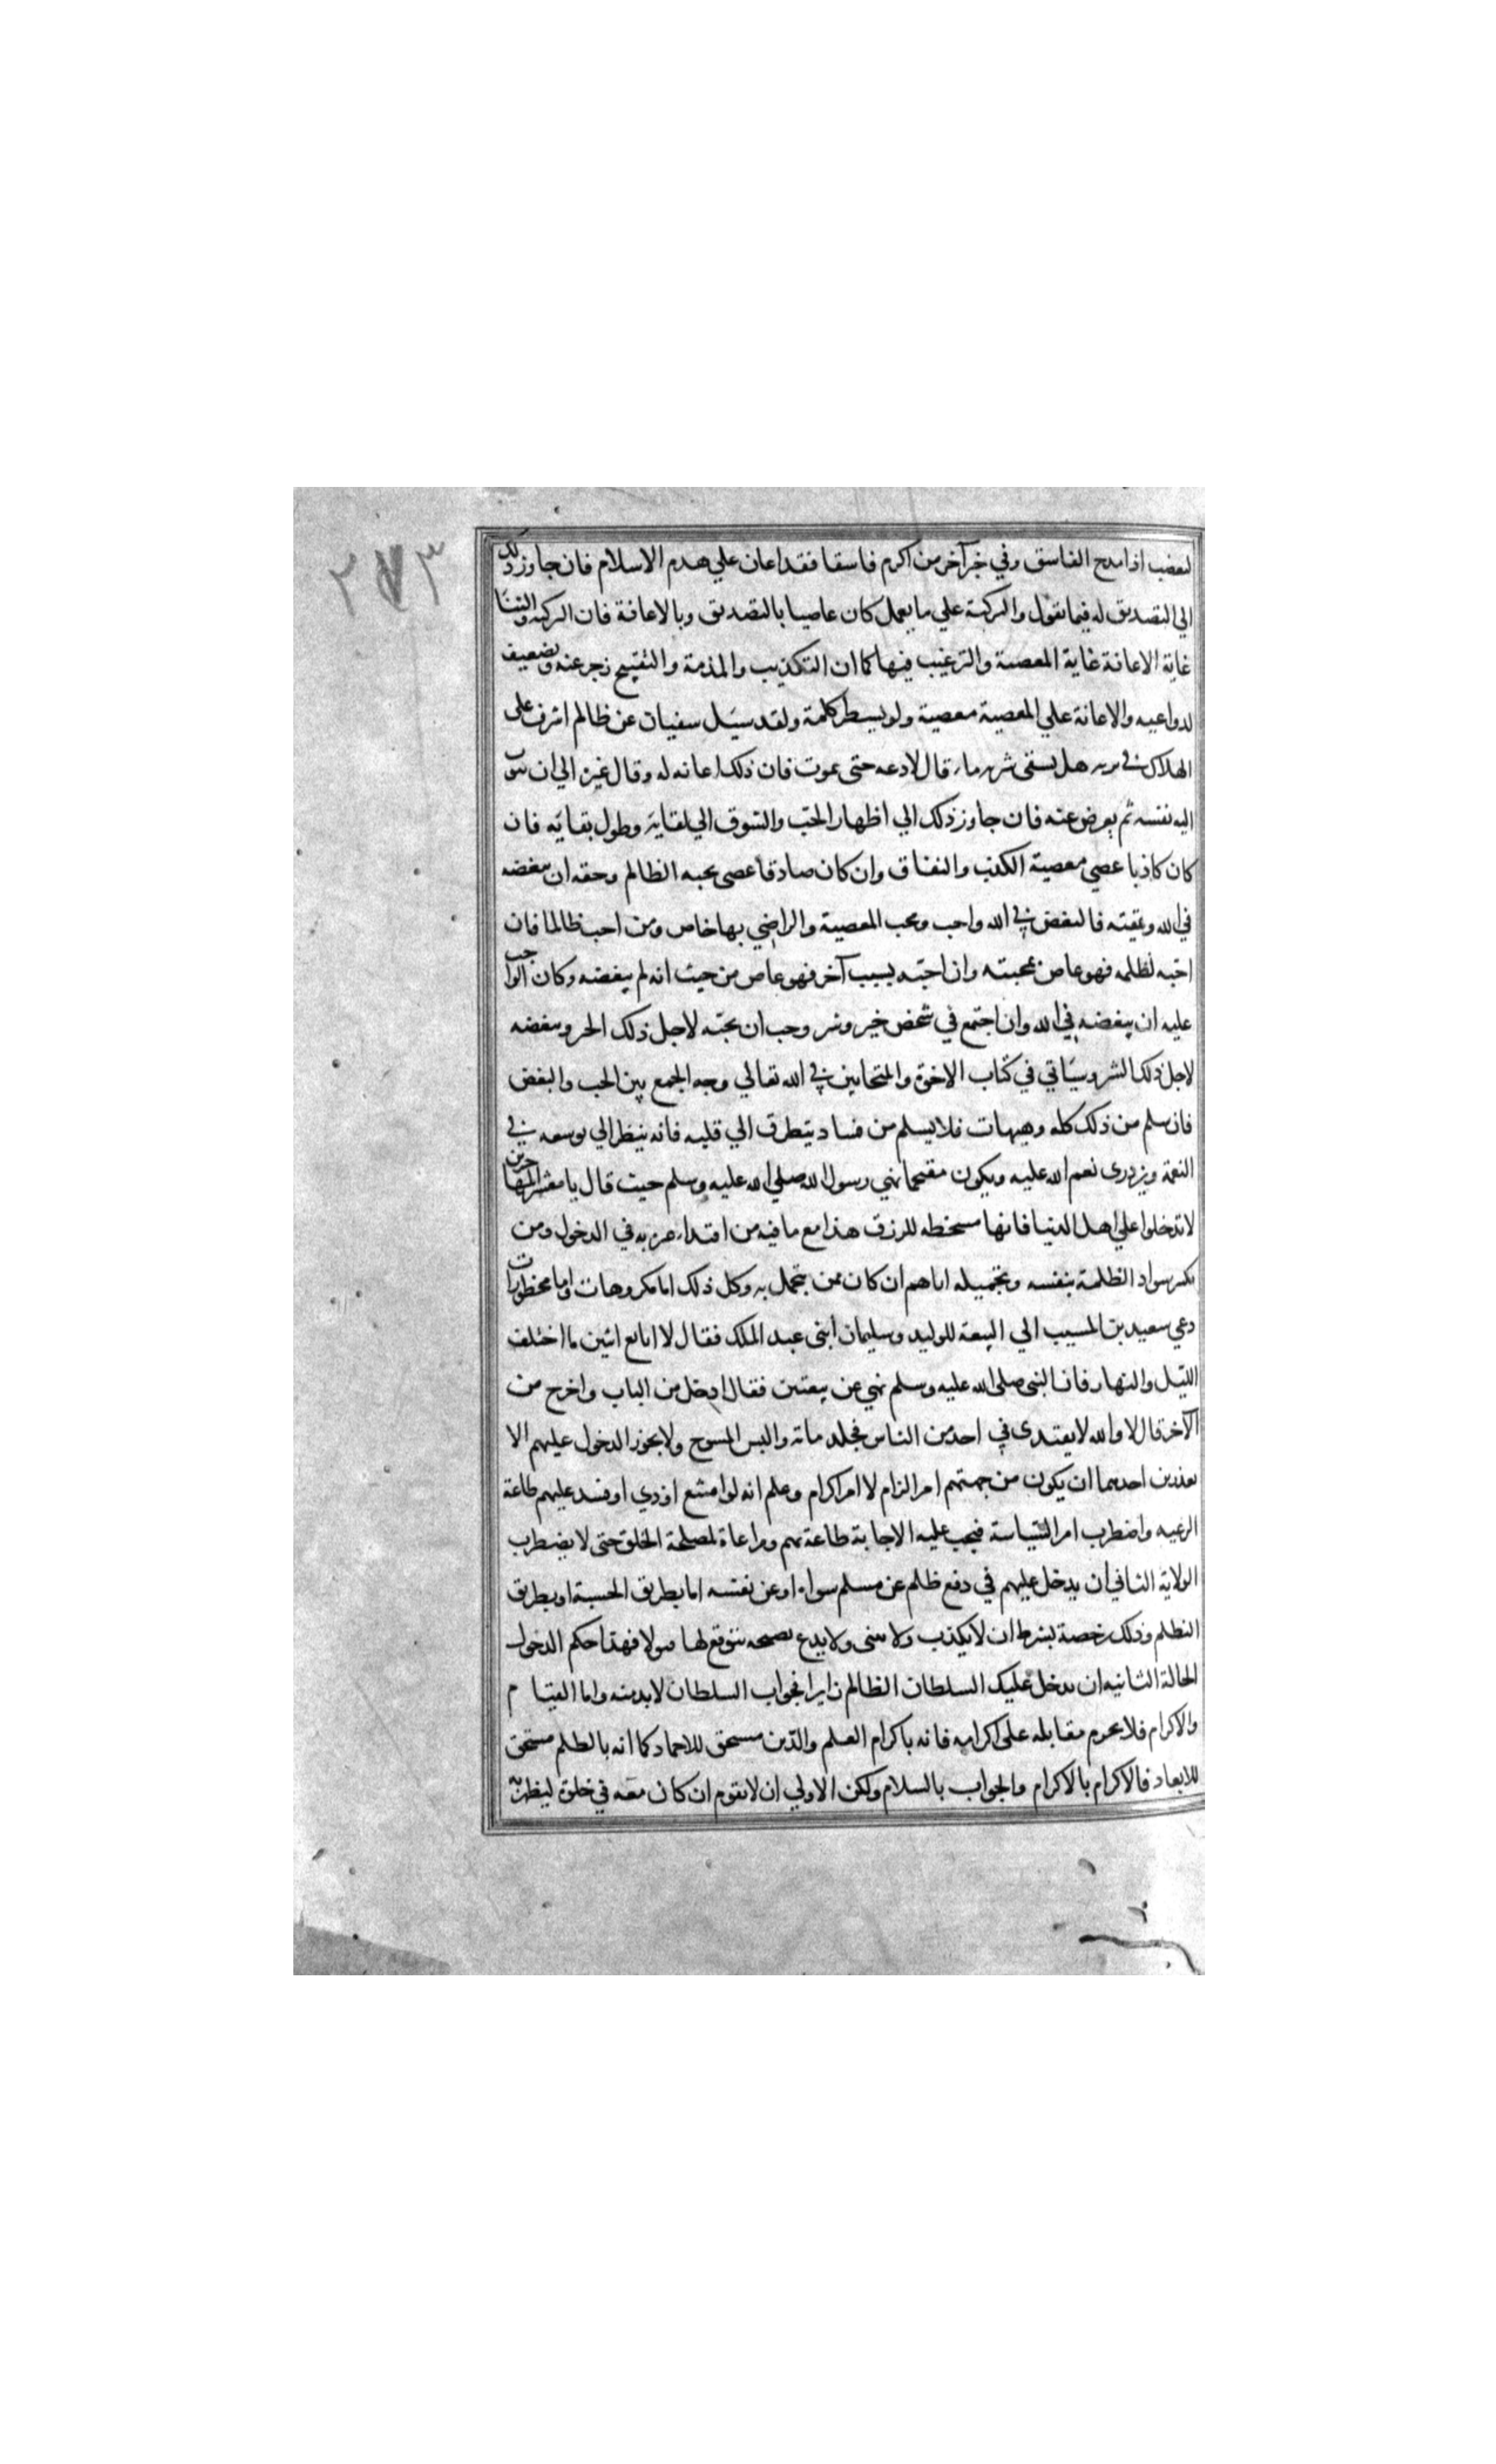 ٢٧٣
ليغضب اذا مدح الفاسق وفي خبر آخر من اكرم فاسقا فقد اعان علي هدم الاسلام فان جاوز ذلك
الي التصديق له فيما يقول والتزكية علي ما يعمل كان عاصيا بالتصديق وبالاعانة فان التزكية والثنا
غاية الاعانة غاية المعصية والترغيب فيها كما ان التكذيب والمذمة والتقبيح زجر عنه وتضعيف
لدواعيه والاعانة علي المعصية معصية ولو بسطر كلمة ولقد سئل سفيان عن ظالم اشرف على
الهلاك في برية هل يسقى شربة ماء قال لا دعه حتى يموت فان ذلك اعانة له وقال غيره الي ان تثوب
اليه نفسه ثم يعرض عنه فان جاوز ذلك الي اظهار الحب والشوق الي لقايه وطول بقايه فان
كان كاذبا عصي معصية الكذب والنفاق وان كان صادقا عصى بحبه الظالم وحقه ان يبغضه
في الله ويمقته فالبغض في الله واجب ومحب المعصية والراضي بها خاص ومن احب ظالما فان
احبه لظلمه فهو عاص بمحبته وان احبه بسبب آخر فهو عاص من حيث انه لم يبغضه وكان الواجب
عليه ان يبغضه في الله وان اجتمع في شخص خير وشر وجب ان يحبه لاجل ذلك الخير ويبغضه
لاجل ذلك الشر وسئاتي في كتاب الاخوة والمتحابين في الله تعالي وجه الجمع بين الحب والبغض
فان سلم من ذلك كله وهيهات فلا يسلم من فساد يتطرق الي قلبه فانه ينظر الي توسعه في
النعمة ويزدرى نعم الله عليه ويكون مقتحما نهي رسول الله صلي الله عليه وسلم حيث قال يا معشر المهاجرين
لا تدخلوا علي اهل الدنيا فانها مسخطه للرزق هذا مع ما فيه من اقتداء غيره به في الدخول ومن
تكثير سواد الظلمة بنفسه وتجميله اياهم ان كان ممن يتجمل به وكل ذلك اما مكروهات واما محظورات
دعي سعيد بن المسيب الي البيعة للوليد وسليمان ابنى عبد الملك فقال لا ابايع اثنين ما اختلف
الليل والنهار فان النبى صلى الله عليه وسلم نهي عن بيعتين فقال ادخل من الباب واخرج من
الآخر قال لا والله لا يقتدى بي احد من الناس فجلد ماته والبس المسوح ولا يجوز الدخول عليهم الا
بعذرين احدهما ان يكون من جهتهم امر الزام لا امر اكرام وعلم انه لو امتنع اوذي او فسد عليهم طاعة
الرعيه واضطرب امر السياسة فيجب عليه الاجابة طاعة لهم ومراعاة لمصلحة الخلق حتى لا يضطرب
الولاية الثاني ان يدخل عليهم في دفع ظلم عن مسلم سواه او عن نفسه اما بطريق الحسبة او بطريق
التظلم وذلك رخصة بشرط ان لا يكذب ولا يثنى ولا يدع نصيحه يتوقع لها قبولا فهذا حكم الدخول
الحالة الثانيه ان يدخل عليك السلطان الظالم زايرا فجواب السلطان لا بد منه واما القيام
والاكرام فلا يحرم مقابله على اكرامه فانه باكرام العلم والدين مستحق للاحماد كما انه بالظلم مستحق
للابعاد فالاكرام بالاكرام والجواب بالسلام ولكن الاولي ان لا يقوم ان كان معه في خلوة ليظهر به